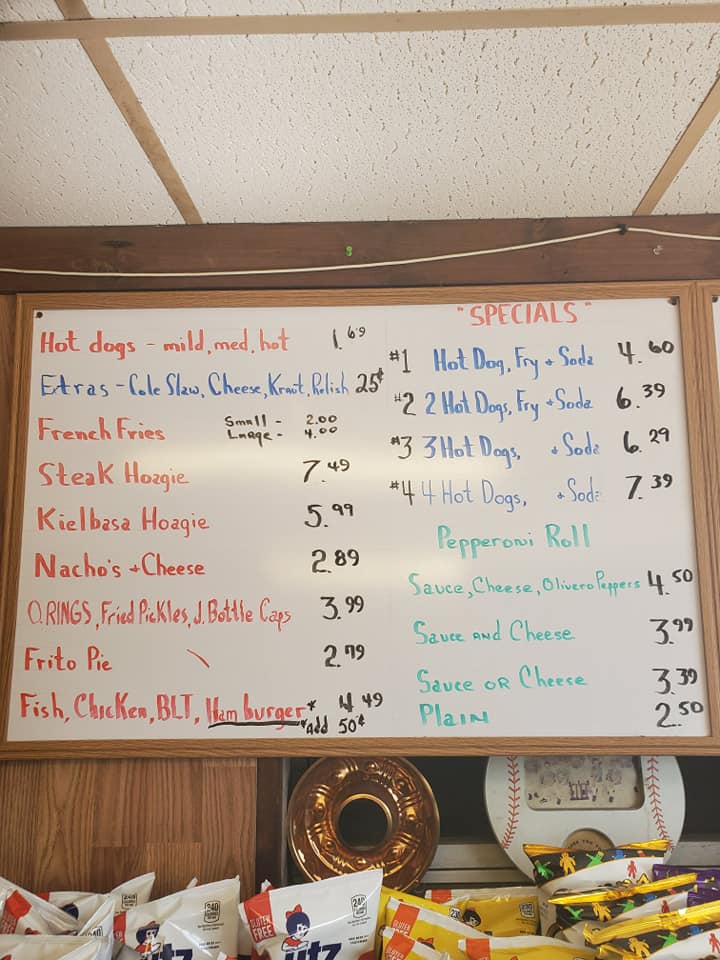 Hot dogs - mild, med, hot 1.69
Extras - Cole Slaw, Cheese, Kraut, Relish 25¢
French Fries Small - 2.00
Large - 4.00
Steak Hoagie 7.49
Kielbasa Hoagie 5.99
Nacho's + Cheese 2.89
O.RINGS, Fried Pickles, J. Bottle Caps 3.99
Frito Pie 2.79
Fish, Chicken, BLT, Hamburger* 4.49
*Add 50¢
"SPECIALS"
#1 Hot Dog, Fry + Soda 4.60
#2 2 Hot Dogs, Fry + Soda 6.39
#3 3 Hot Dogs, + Soda 6.29
#4 4 Hot Dogs, + Soda 7.39
Pepperoni Roll
Sauce, Cheese, Olivero Peppers 4.50
Sauce and Cheese 3.99
Sauce or Cheese 3.39
Plain 2.50
240
240
240
GLUTEN FREE
utz
utz
GLUTEN FREE